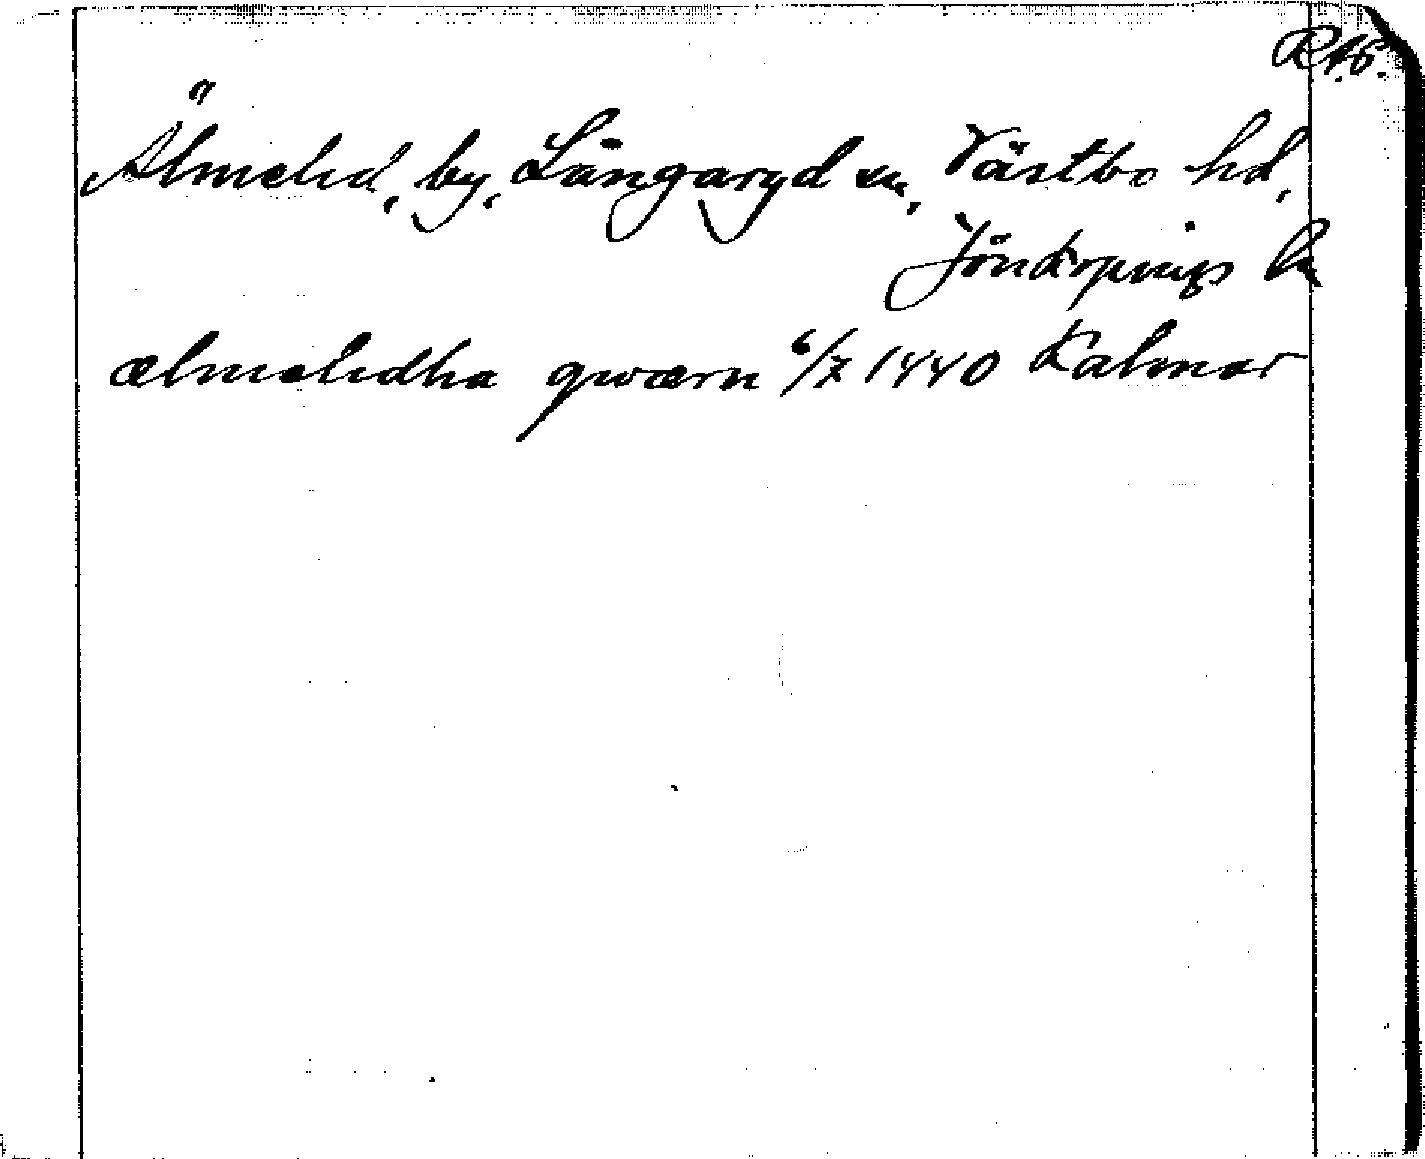 RAp.
Älmelid, by, Långaryd sn, Västbo hd,
Jönköpings l.
ælmelidha qwærn 6/7 1440 Kalmar